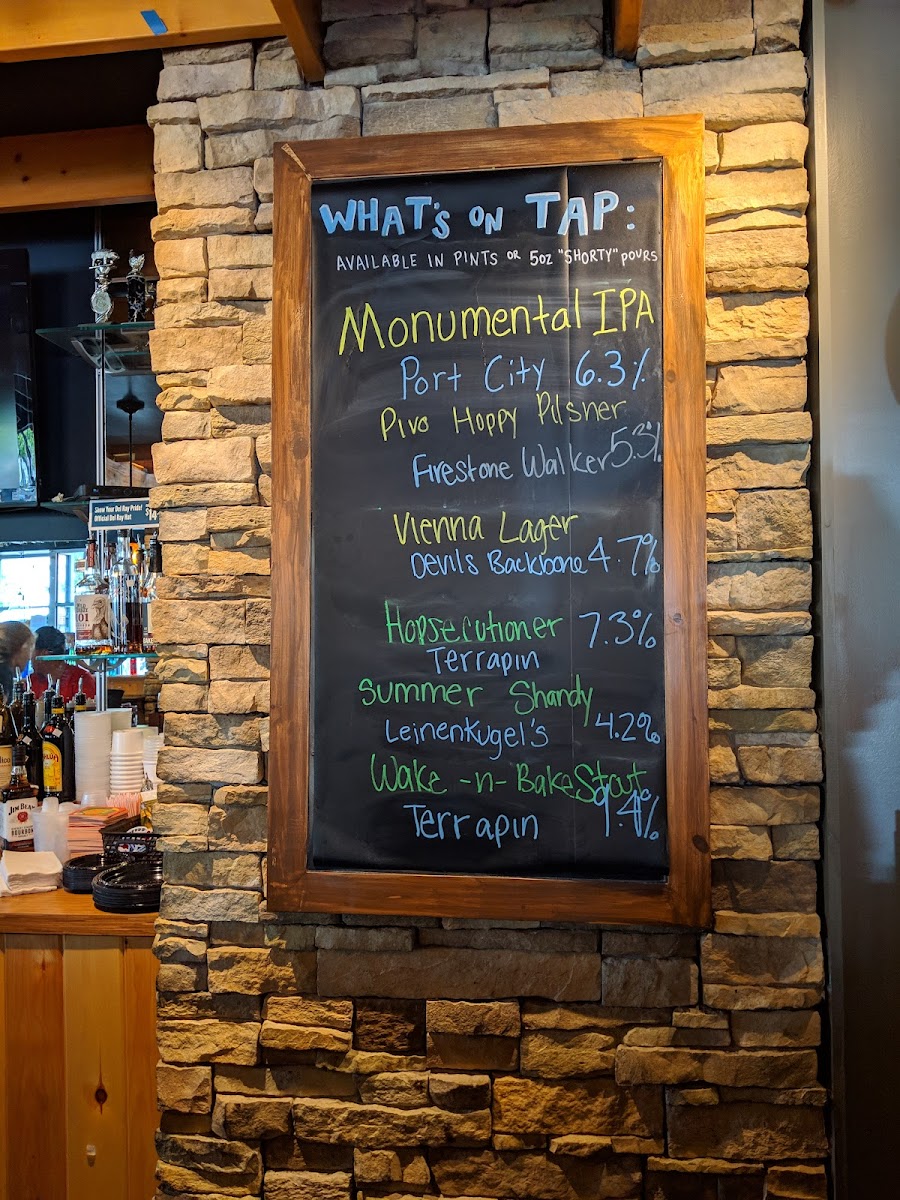 WHAT'S ON TAP:
AVAILABLE IN PINTS OR 5oz "SHORTY" POURS
Monumental IPA
Port City 6.3%
Pivo Hoppy Pilsner
Firestone Walker 5.3%
Vienna Lager
Devils Backbone 4.7%
Hopsecutioner 7.3%
Terrapin
Summer Shandy
Leinenkugel's 4.2%
Wake-n-Bake Stout
Terrapin 9.4%
Show Your Del Ray Pride!
Official Del Ray Hat
$14
101
JIM BEAM
BOURBON